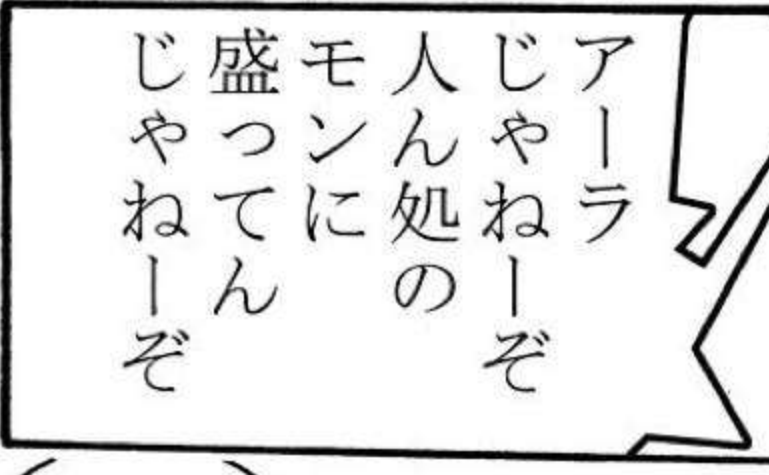 アーラ
じゃねーぞ
人ん処の
モンに
盛ってん
じゃねーぞ